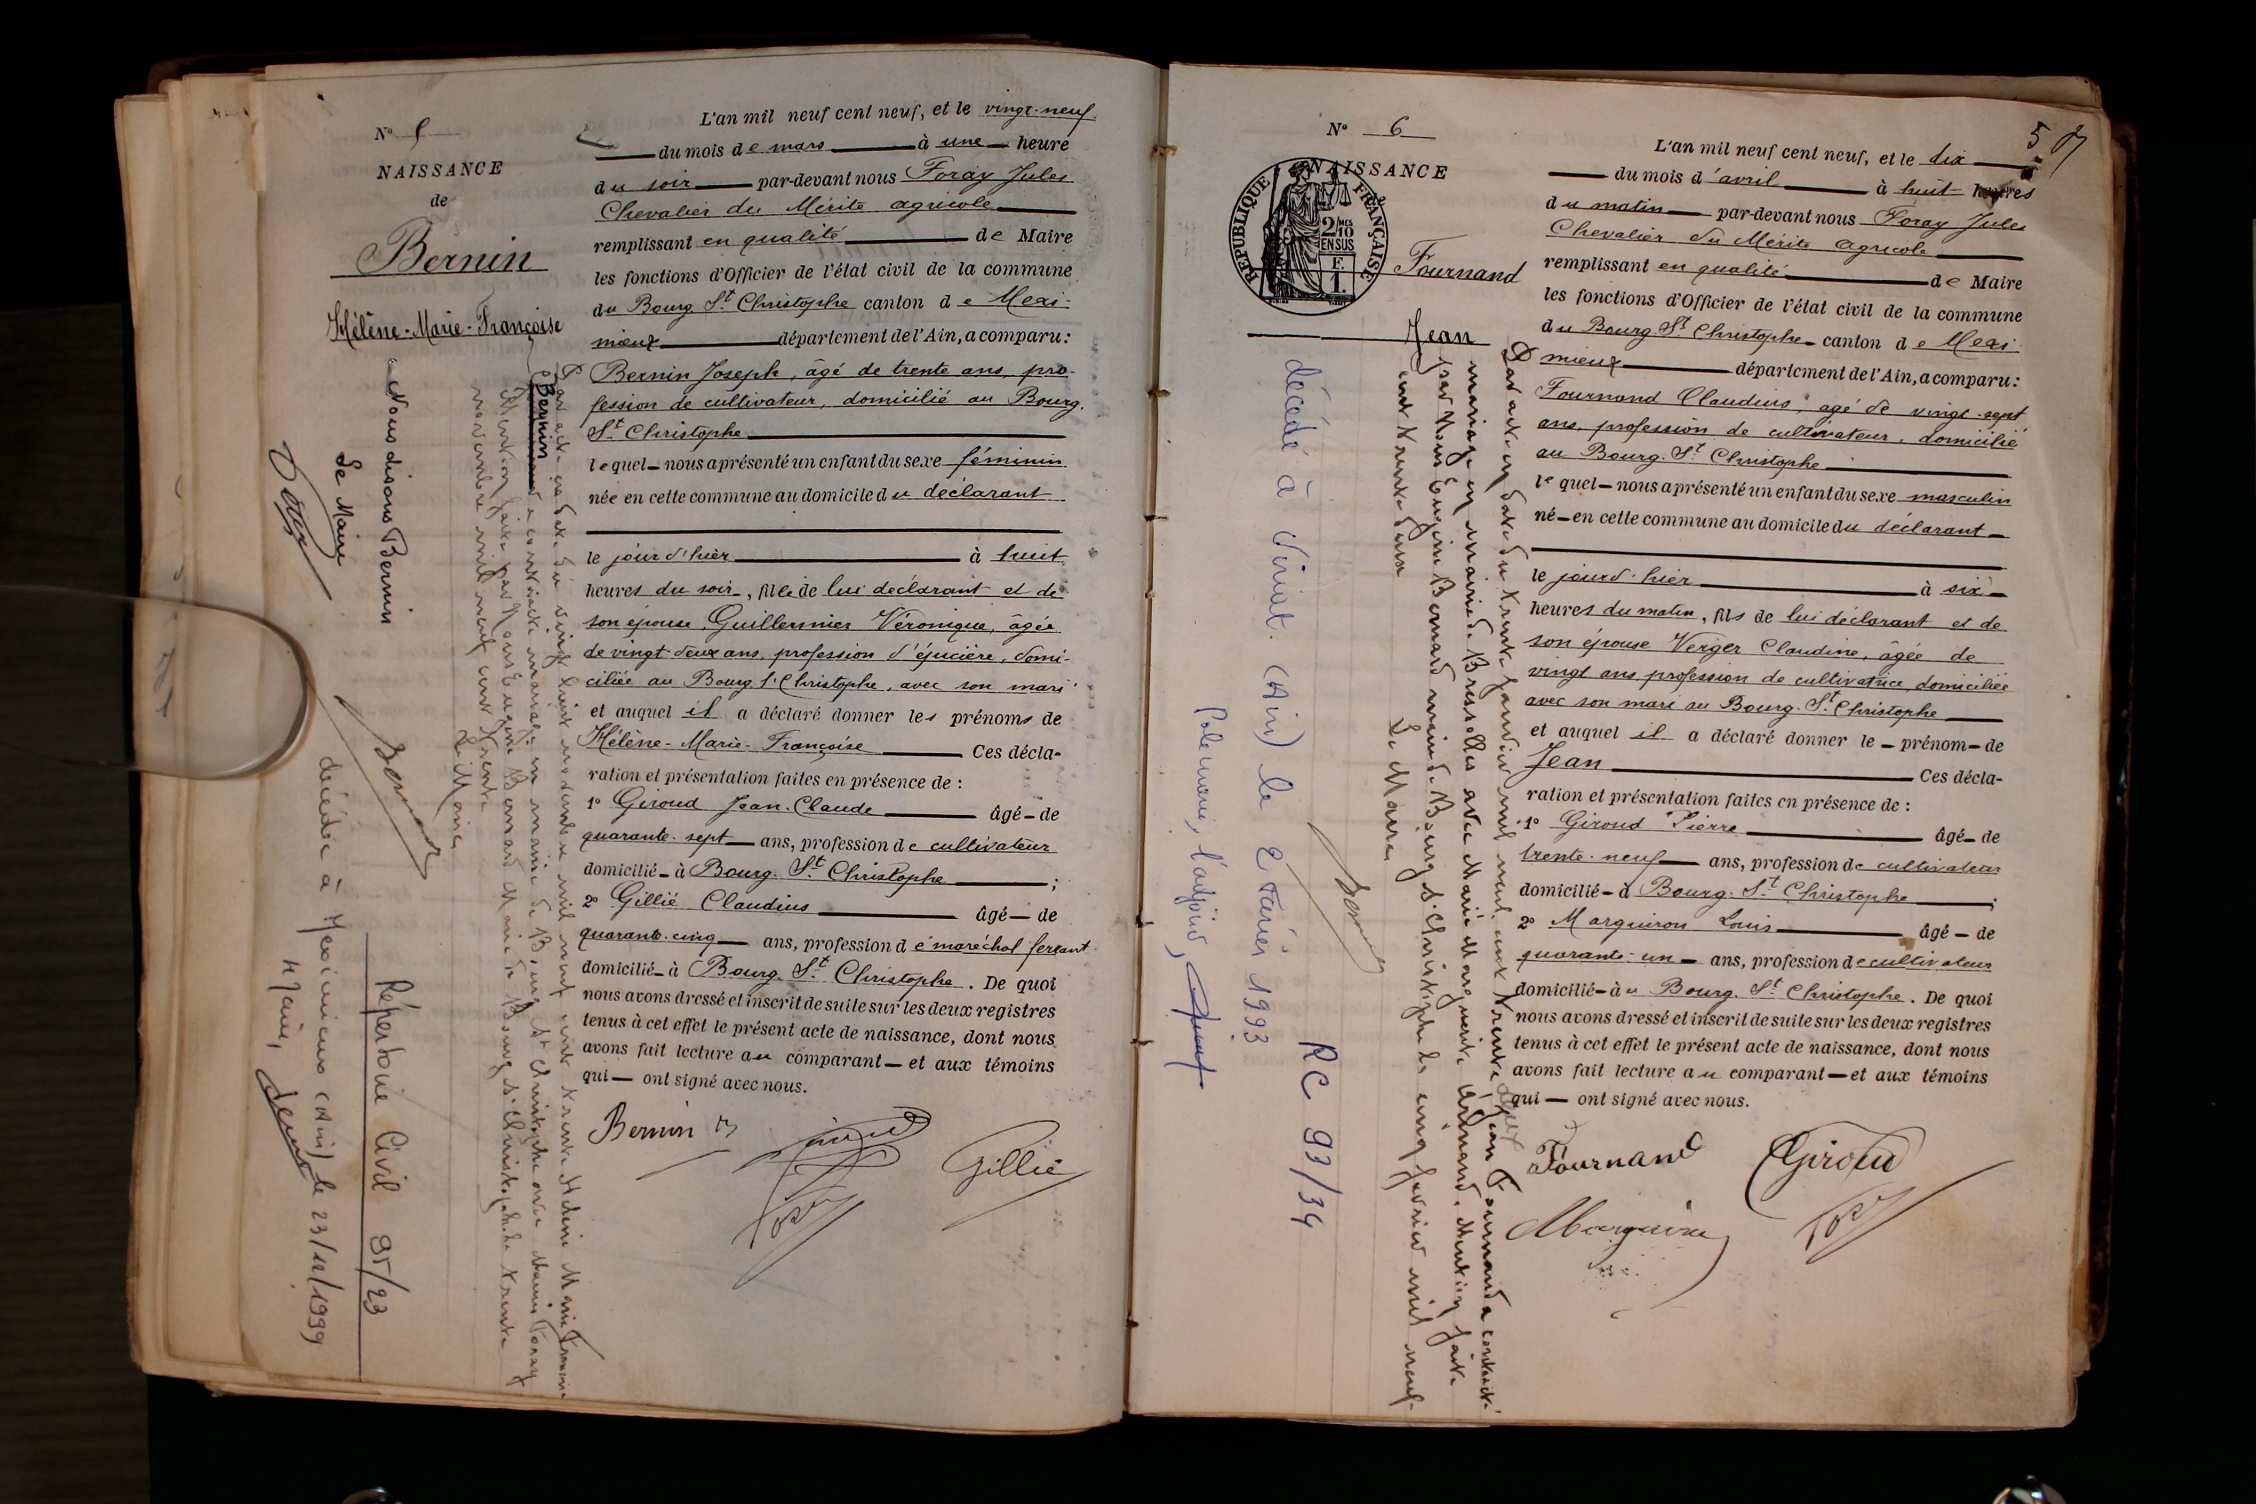 N° 5
NAISSANCE
de
Bernin
Hélène-Marie-Françoise
L'an mil neuf cent neuf, et le vingt-neuf
du mois de mars à une heure
du soir par-devant nous Foray Jules
Chevalier du Mérite agricole
remplissant en qualité de Maire
les fonctions d'Officier de l'état civil de la commune
du Bourg. St Christophe canton de Mexi-
mieux département de l'Ain, a comparu :
Bernin Joseph, âgé de trente ans, pro-
fession de cultivateur, domicilié au Bourg.
St Christophe
lequel nous a présenté un enfant du sexe féminin
née en cette commune au domicile du déclarant
le jour d'hier à huit
heures du soir, fille de lui déclarant et de
son épouse Guillermier Véronique, âgée
de vingt-deux ans, profession d'épicière, domi-
ciliée au Bourg St Christophe, avec son mari
et auquel il a déclaré donner les prénoms de
Hélène-Marie-Françoise Ces décla-
ration et présentation faites en présence de :
1° Giroud Jean-Claude âgé de
quarante-sept ans, profession de cultivateur
domicilié à Bourg. St Christophe ;
2° Gillié Claudius âgé de
quarante-cinq ans, profession de maréchal ferrant
domicilié à Bourg. St Christophe. De quoi
nous avons dressé et inscrit de suite sur les deux registres
tenus à cet effet le présent acte de naissance, dont nous
avons fait lecture au comparant et aux témoins
qui ont signé avec nous.
Bernin J
Giroud
Gillié
Foray
Par acte en date du vingt huit novembre mil neuf cent trente Hélène Marie Françoise
Bernin a contracté mariage en mairie de Bourg St Christophe avec
Mention faite par Nous Eugène Bernard Maire de Bourg St Christophe le trente
novembre mil neuf cent trente
Le Maire
Bernard
Nous disons Bernin
Le Maire
Répertoire Civil 95/23
décédée à Meximieux (Ain) le 23/12/1999
N° 6
NAISSANCE
REPUBLIQUE FRANÇAISE
2/10 EN SUS
F. 1.
Fournand
Jean
5
L'an mil neuf cent neuf, et le dix
du mois d'avril à huit heures
du matin par-devant nous Foray Jules
Chevalier du Mérite agricole
remplissant en qualité de Maire
les fonctions d'Officier de l'état civil de la commune
du Bourg. St Christophe canton de Mexi-
mieux département de l'Ain, a comparu :
Fournand Claudius, âgé de vingt-sept
ans, profession de cultivateur, domicilié
au Bourg. St Christophe
lequel nous a présenté un enfant du sexe masculin
né en cette commune au domicile du déclarant
le jour d'hier à six
heures du matin, fils de lui déclarant et de
son épouse Verger Claudine, âgée de
vingt ans profession de cultivatrice, domiciliée
avec son mari au Bourg. St Christophe
et auquel il a déclaré donner le prénom de
Jean Ces décla-
ration et présentation faites en présence de :
1° Giroud Pierre âgé de
trente-neuf ans, profession de cultivateur
domicilié à Bourg. St Christophe ;
2° Marguiron Louis âgé de
quarante-un ans, profession de cultivateur
domicilié au Bourg. St Christophe. De quoi
nous avons dressé et inscrit de suite sur les deux registres
tenus à cet effet le présent acte de naissance, dont nous
avons fait lecture au comparant et aux témoins
qui ont signé avec nous.
Fournand
Giroud
Marguiron
Foray
Par acte en date du trente janvier mil neuf cent trente deux Jean Fournand a contracté
mariage en mairie de Bressolles avec Marie Marguerite Mention faite
par Nous Eugène Bernard maire de Bourg St Christophe le cinq février mil neuf
cent trente deux
Le Maire
Bernard
décédé à Viriat (Ain) le 2 Février 1993
RC 93/34
Pole maire, l'adjoint,